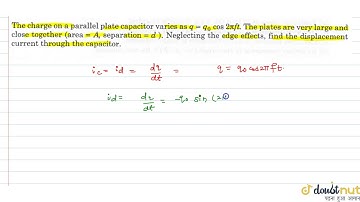 The charge on a parallel plate capacitor varies as q = q₀ cos 2πft. The plates are very large and
close together (area = A, separation = d ). Neglecting the edge effects, find the displacement
current through the capacitor.
ic = id = dq/dt = q = q0 cos2πft.
id = dq/dt = -q0 sin (2π
doubtnut